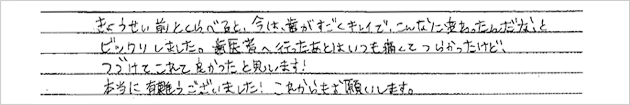 きょうせい前とくらべると、今は、歯がすごくキレイで、こんなに変わったんだな、と
ビックリしました。歯医者へ行ったあとはいつも痛くてつらかったけど、
つづけてこれて良かったと思います!
本当に有難うございました! これからもお願いします。